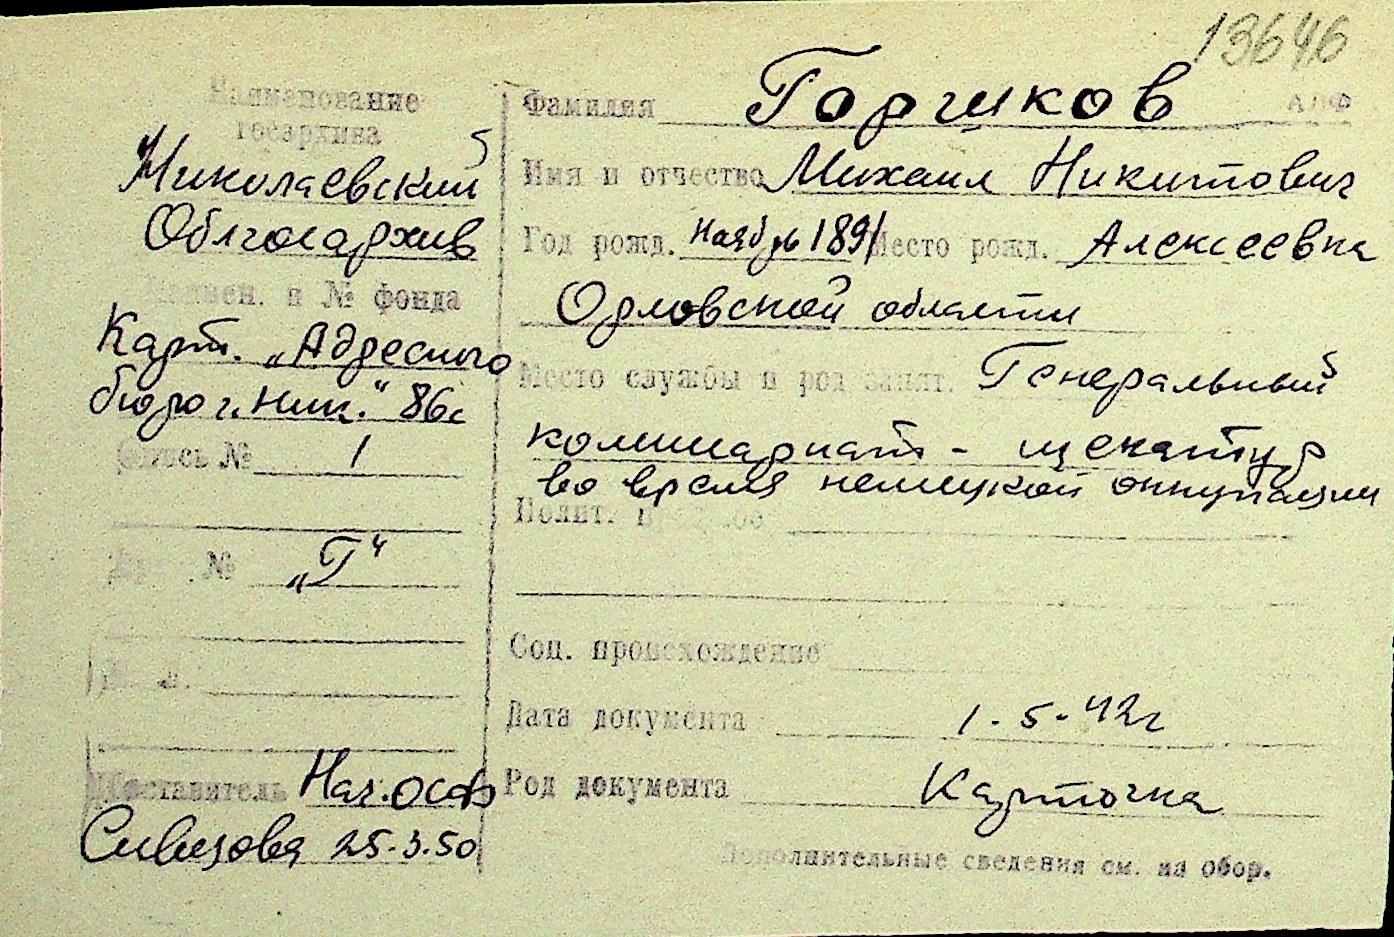 13646
Наименование
госархива
Николаевский
Облгосархив
Наимен. и № фонда
Карт. „Адресного
бюро г. Ник." 86с
Опись № 1
№ „Г"
Составитель Нач. ОСФ
25.3.50
Фамилия Горшков
Имя и отчество Михаил Никитович
Год рожд. Ноябрь 1891 Место рожд. Алексеевка
Орловской области
Место службы и род занят. Генеральный
комиссариат - щекатур
во время немецкой оккупации
Полит.
Соц. происхождение
Дата документа 1.5.42г
Род документа Карточка
Дополнительные сведения см. на обор.